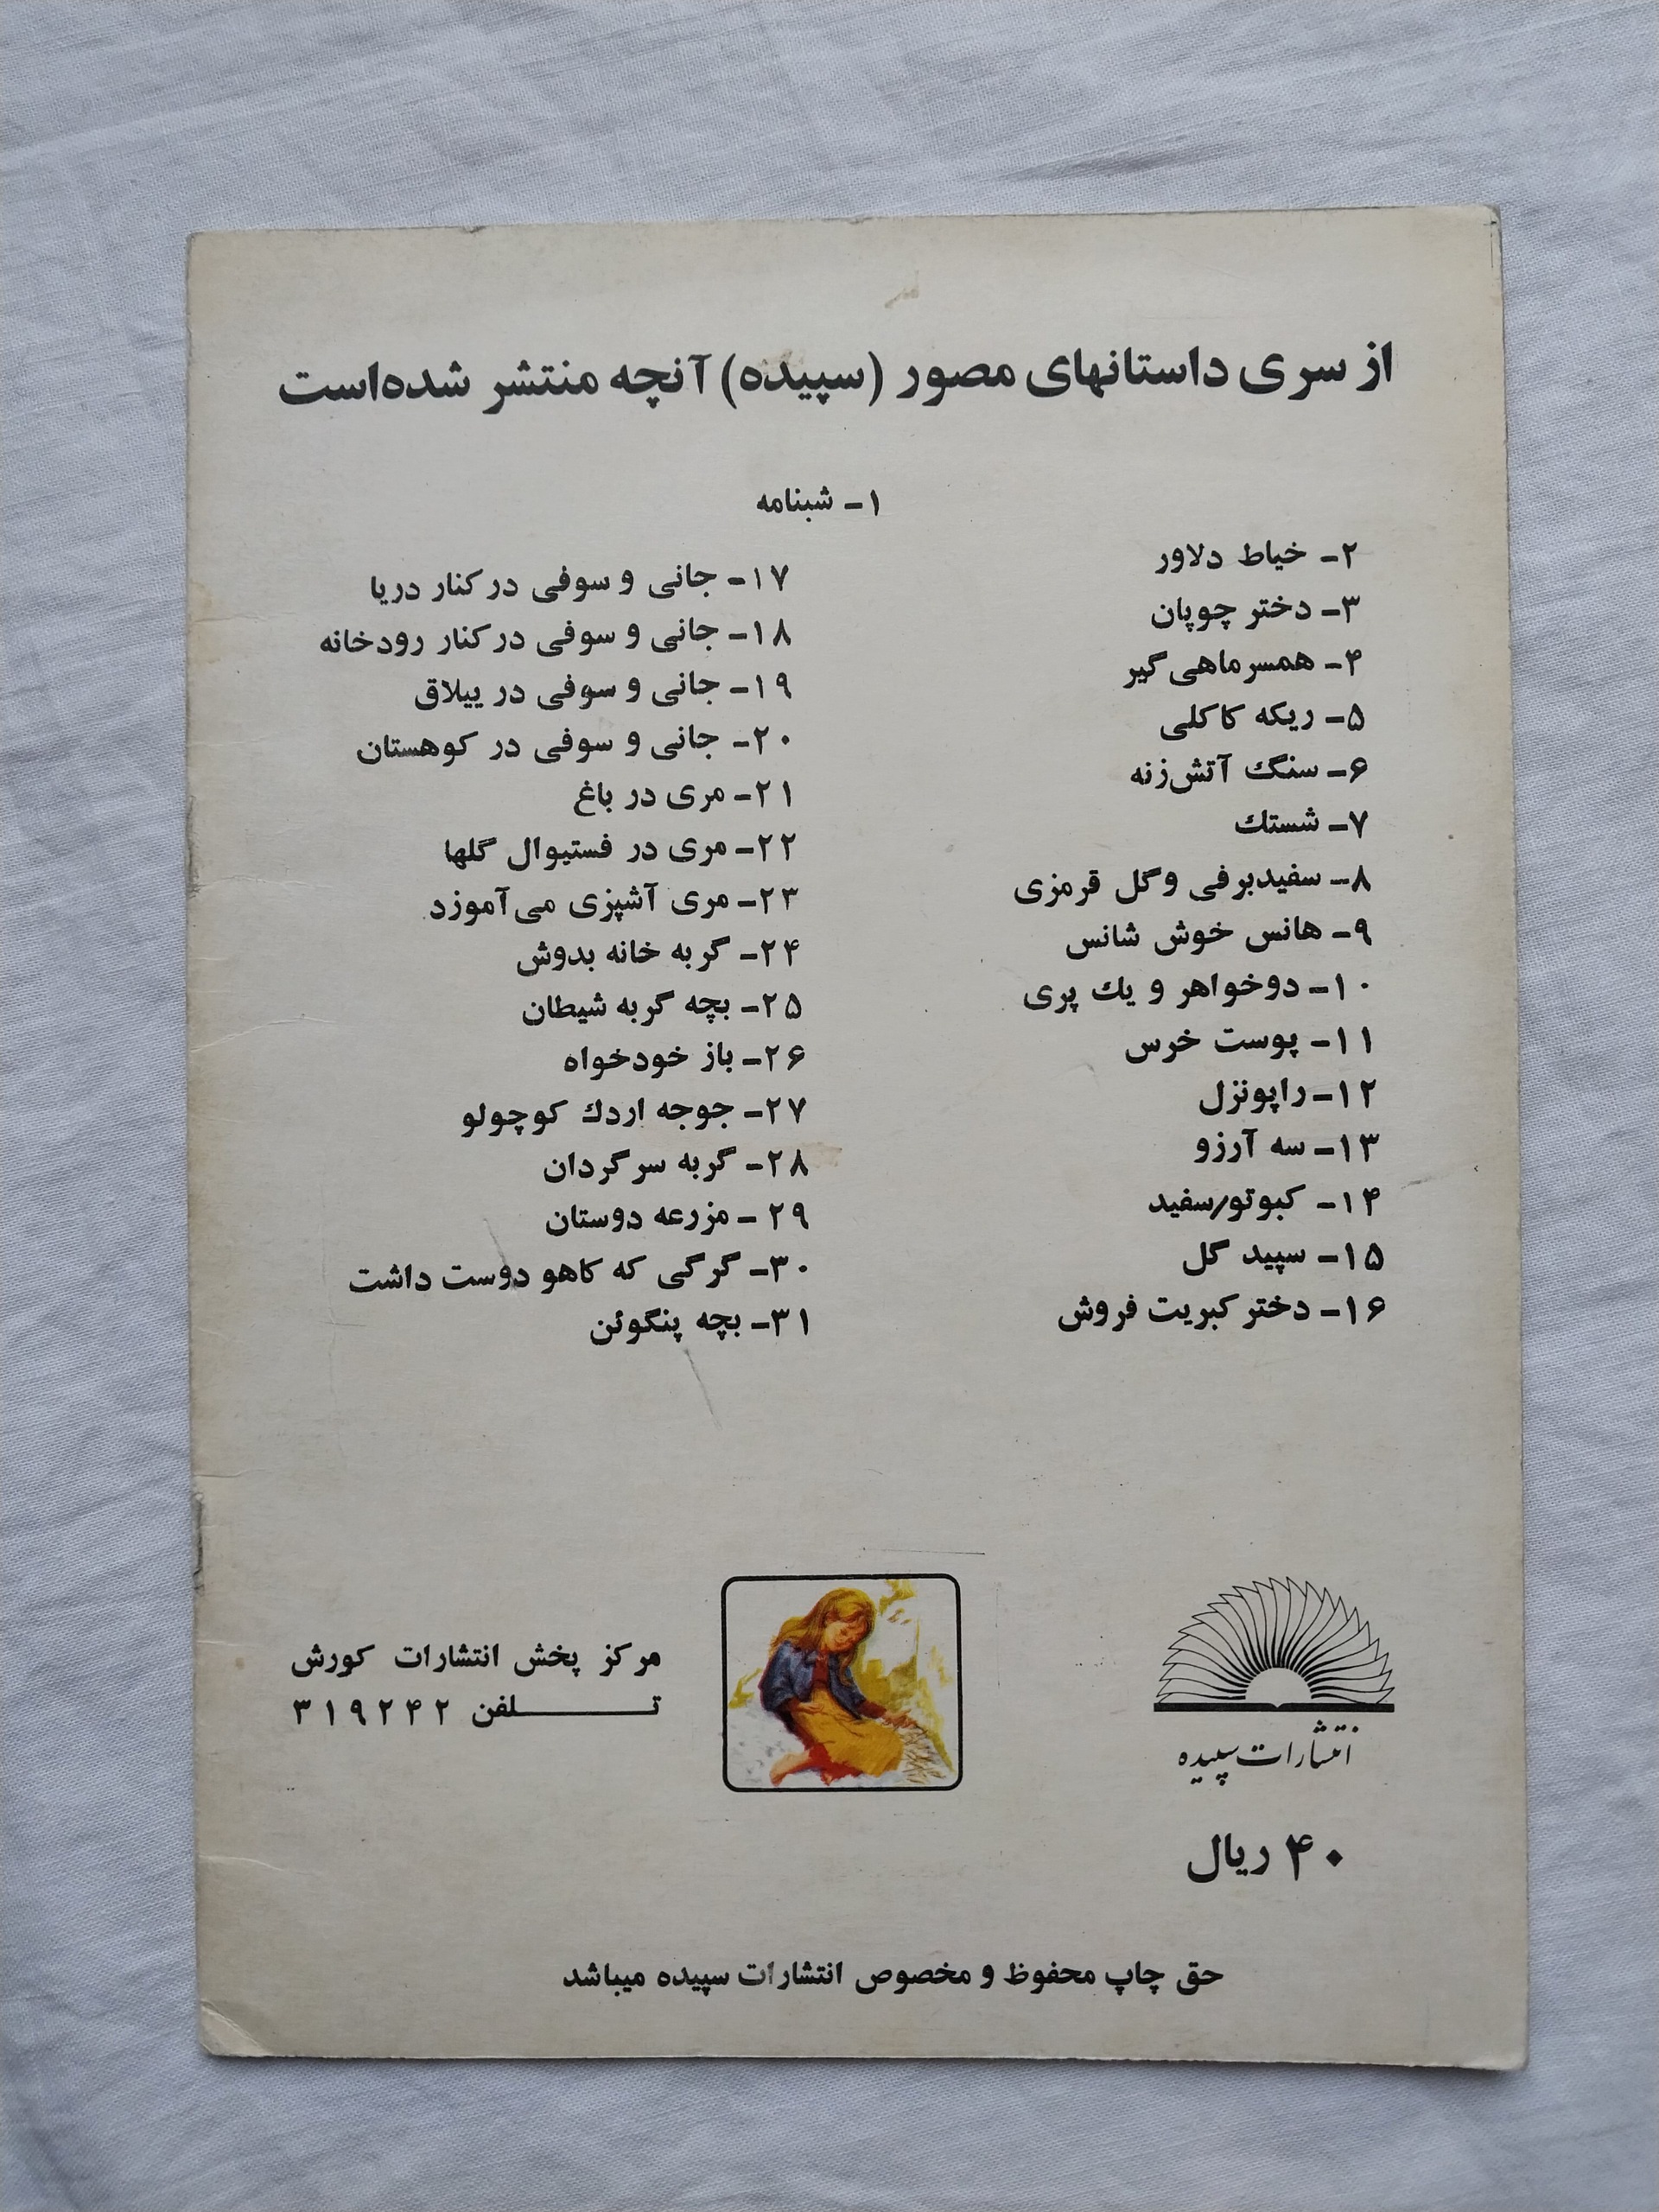 از سری داستانهای مصور (سپیده) آنچه منتشر شده‌است
۱- شبنامه
۲- خیاط دلاور
۳- دختر چوپان
۴- همسر ماهی‌گیر
۵- ریکه کاکلی
۶- سنگ آتش‌زنه
۷- شستك
۸- سفیدبرفی و گل قرمزی
۹- هانس خوش شانس
۱۰- دوخواهر و یك پری
۱۱- پوست خرس
۱۲- راپونزل
۱۳- سه آرزو
۱۴- کبوتو/سفید
۱۵- سپید گل
۱۶- دختر کبریت فروش
۱۷- جانی و سوفی در کنار دریا
۱۸- جانی و سوفی در کنار رودخانه
۱۹- جانی و سوفی در ییلاق
۲۰- جانی و سوفی در کوهستان
۲۱- مری در باغ
۲۲- مری در فستیوال گلها
۲۳- مری آشپزی می‌آموزد
۲۴- گربه خانه بدوش
۲۵- بچه گربه شیطان
۲۶- باز خودخواه
۲۷- جوجه اردك کوچولو
۲۸- گربه سرگردان
۲۹- مزرعه دوستان
۳۰- گرگی که کاهو دوست داشت
۳۱- بچه پنگوئن
انتشارات سپیده
مرکز پخش انتشارات کورش
تـــــــلفن ۳۱۹۲۴۲
۴۰ ریال
حق چاپ محفوظ و مخصوص انتشارات سپیده میباشد